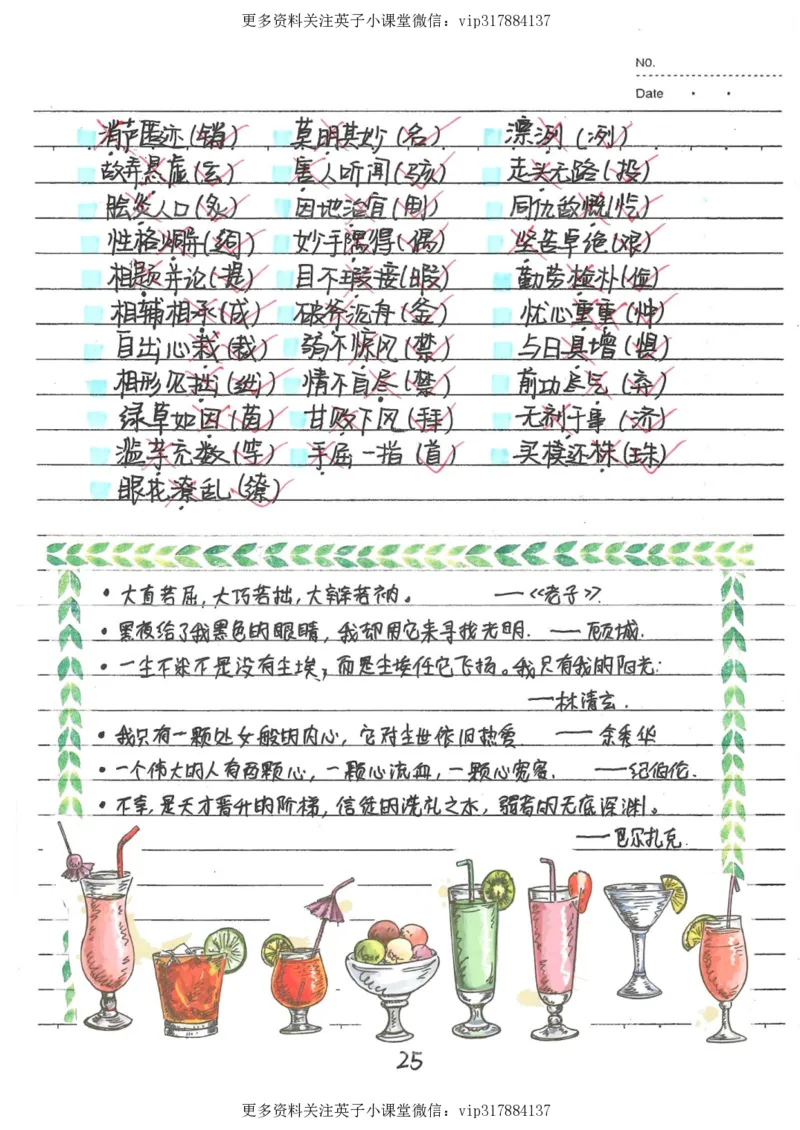 更多资料关注英子小课堂微信：vip317884137
NO.
Date
消声匿迹(销) 莫明其妙(名) 漂冽(冽)
故弄悬虚(玄) 害人听闻(骇) 走头无路(投)
脍炎人口(炙) 因地治宜(制) 同仇敌慨(忾)
性格炯异(迥) 妙手隅得(偶) 坚苦卓绝(艰)
相题并论(提) 目不瑕接(暇) 勤劳检朴(俭)
相辅相承(成) 破斧沉舟(釜) 忧心重重(忡)
自出心栽(裁) 弱不惊风(禁) 与日具增(俱)
相形见拙(绌) 情不自尽(禁) 前功尽气(弃)
绿草如因(茵) 甘败下风(拜) 无利于事(济)
滥芋充数(竽) 手屈一指(首) 买椟还株(珠)
眼花潦乱(缭)
•大直若屈,大巧若拙,大辩若讷。 —《老子》.
•黑夜给了我黑色的眼睛,我却用它来寻找光明. — 顾城.
•一生不染不是没有尘埃,而是尘埃任它飞扬。我只有我的阳光.
—林清玄.
•我只有一颗处女般的内心,它对尘世依旧热爱. — 余秀华
•一个伟大的人有两颗心,一颗心流血,一颗心宽容. —纪伯伦.
•不幸,是天才晋升的阶梯,信徒的洗礼之水,弱者的无底深渊。
—巴尔扎克.
25
更多资料关注英子小课堂微信：vip317884137